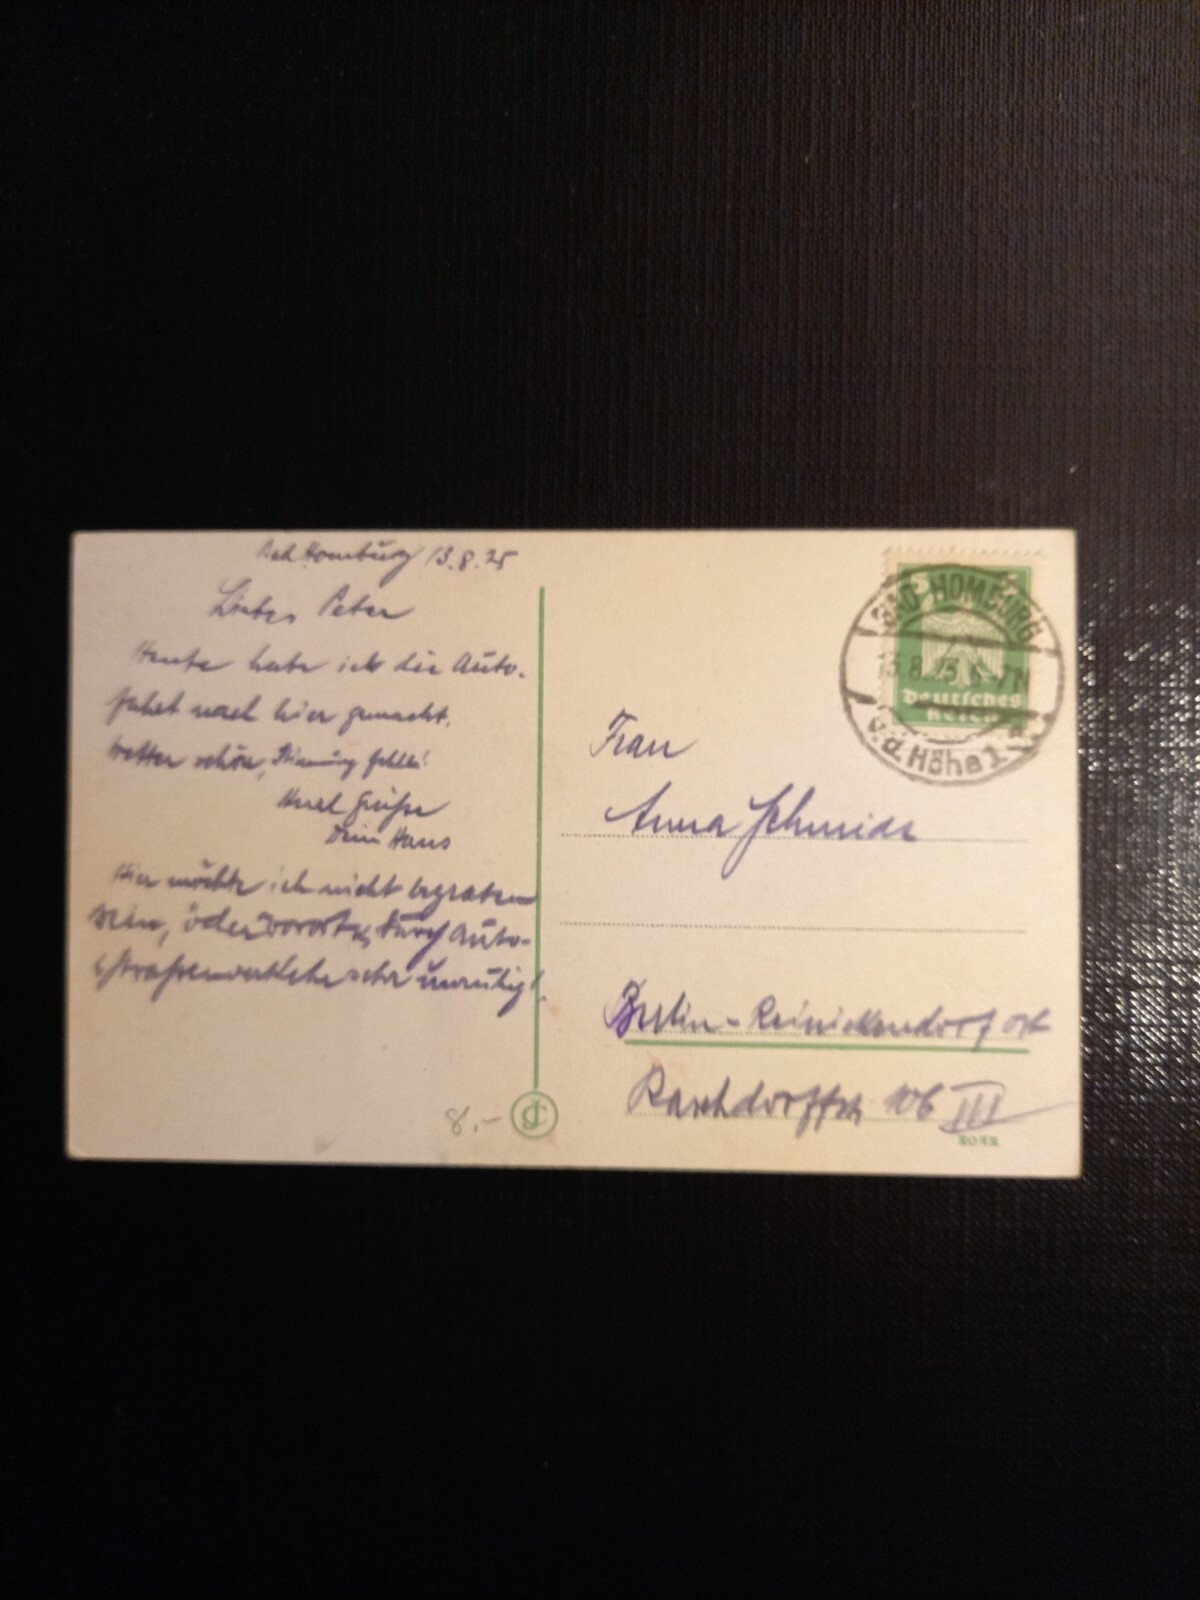 Bad Homburg 13.8.25
Liebes Peter
Heute habe ich die Auto-
fahrt nach hier gemacht.
Wetter schön, Stimmung fehlt!
Grüße
Dein Hans
Hier möchte ich nicht begraben
sein, öder Vorort, durch Auto-
straßenverkehr sehr unruhig!
8.-
5 5
Deutsches
Reich
BAD HOMBURG
13.8.25 N
v.d. Höhe 1
Frau
Anna Schmidt
Berlin-Reinickendorf ost
106 III